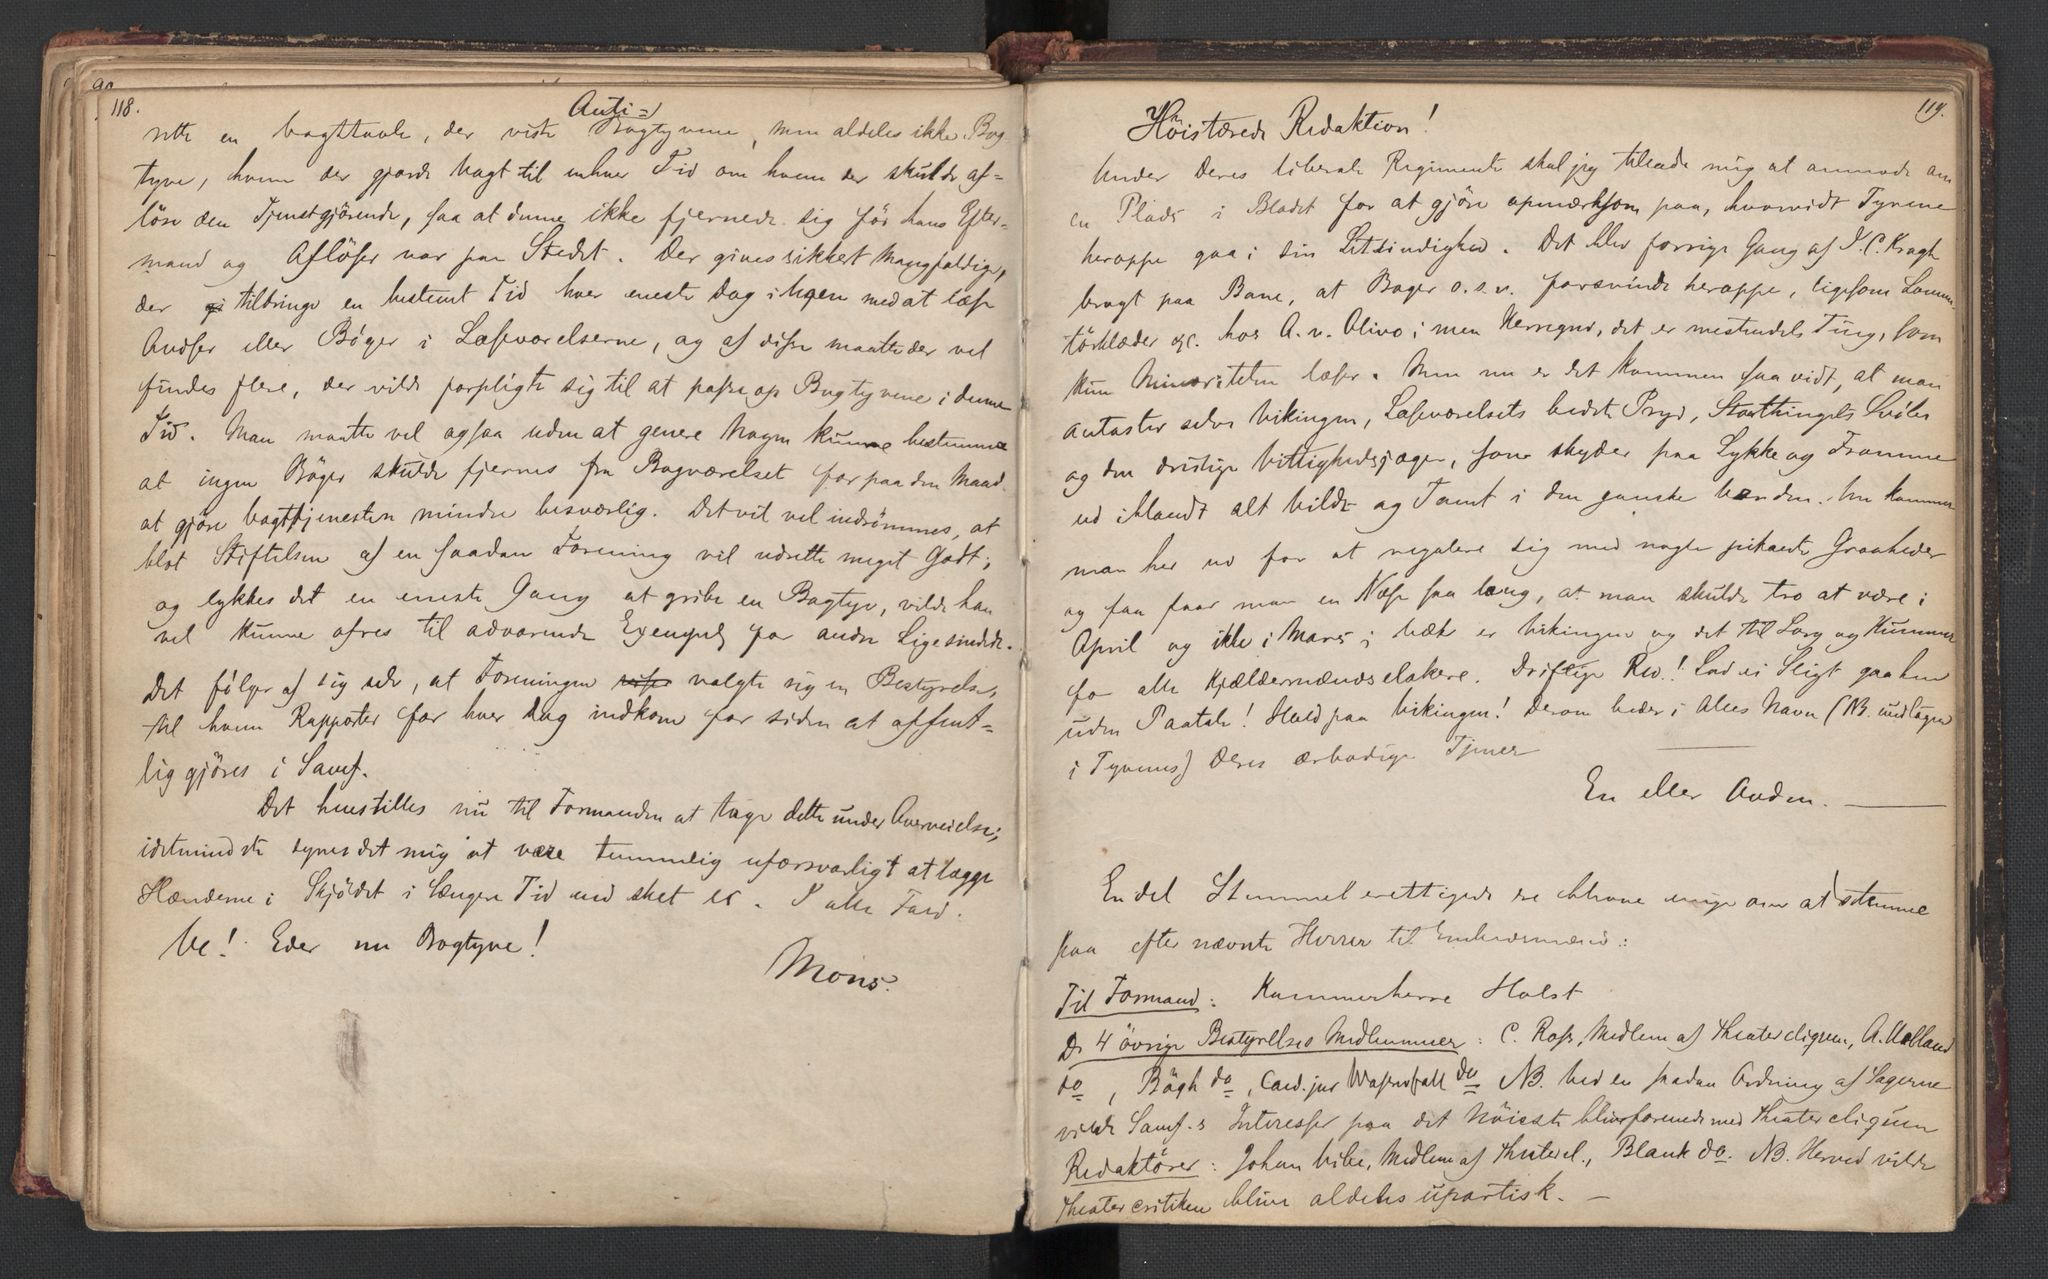 118.
Anti-
rette en Vagttavle, der viste Bogtyvene, men aldeles ikke Bog-
tyve, hvem der gjorde Vagt til enhver Tid om hvem der skulde af-
löse den Tjenstgjörende, saa at denne ikke fjernede sig för hans Efter-
mand og Aflöser var paa Stedet. Der gives sikkert Mangfoldige,
der tilbringe en bestemt Tid hver eneste Dag i Ugen med at læse
Aviser eller Böger i Læseværelserne, og af disse maatte der vel
findes flere, der vilde forpligte sig til at passe op Bogtyvene i denne
Tid. Man maatte vel ogsaa uden at genere Nogen kunne bestemme
at ingen Böger skulde fjernes fra Bogværelset for paa den Maade
at gjöre Vagttjenesten mindre besværlig. Det vil vel indrömmes, at
blot Stiftelsen af en saadan Forening vil udrette meget Godt;
og lykkes det en eneste Gang at gribe en Bogtyv, vilde han
vel kunne ofres til advarende Exempel for andre Ligesindede.
Det fölger af sig selv, at Foreningen valgte sig en Bestyrelse,
til hvem Rapporter for hver Dag indkom for siden at offent-
liggjöres i Samf.
Det henstilles nu til Formanden at tage dette under Overveielse;
idetmindste synes det mig at være temmelig uforsvarligt at lægge
Hænderne i Skjödet i længere Tid end sket er. I alle Fald.
Ve! Eder nu Bogtyve!
Mons.
119.
Höistærede Redaktion!
Under Deres liberale Regimente skal jeg tillade mig at anmode om
en Plads i Bladet for at gjöre opmærksom paa, hvorvidt Tyvene
heroppe gaa i sin Letsindighed. Det blev forrige Gang af J. C. Kragh
bragt paa Bane, at Boger o.s.v. forsvinde heroppe, ligesom Lomme-
törklæder &c. hos A. v. Olivo; men Herregud, det er mestendels Ting, som
kun Minoriteten læser. Men nu er det kommen saa vidt, at man
antaster selve Vikingen, Læseværelsets bedste Pryd, Storthingets Svöbe
og den dristige Vittighedsjæger, som skyder paa Lykke og Fromme
ud iblandt alt Vildt og Tamt i den ganske Verden. Nu kommer
man her ud for at regalere sig med nogle pikante Grovheder
og saa faar man en Næse saa lang, at man skulde tro at være i
April og ikke i Mars; væk er Vikingen og det til Sorg og Kummer
for alle Kjældermændselskere. Driftige Red.! Lad ei Sligt gaa hen
uden Paatale! Hold paa Vikingen! Derom beder i Alles Navn (NB. undtagen
i Tyvenes) Deres ærbödige Tjener
En eller Anden.
En del Stemmeberettigede ere blevne enige om at stemme
paa efter nævnte Herrer til Embedsmænd:
Til Formand: Kammerherre Holst
De 4 övrige Bestyrelses Medlemmer: C. Ross, Medlem af Theatercliquen, A. Holland
do, Bögh do, Cand. jur Wasenfall do NB. Ved en saadan Ordning af Sagerne
vilde Samf.s Interesser paa det Nöieste blive forenede med Theatercliquen
Redaktörer: Johan Vibe, Medlem af Theatercl., Blank do. NB. Herved vilde
theatercritiken blive aldeles upartisk. —